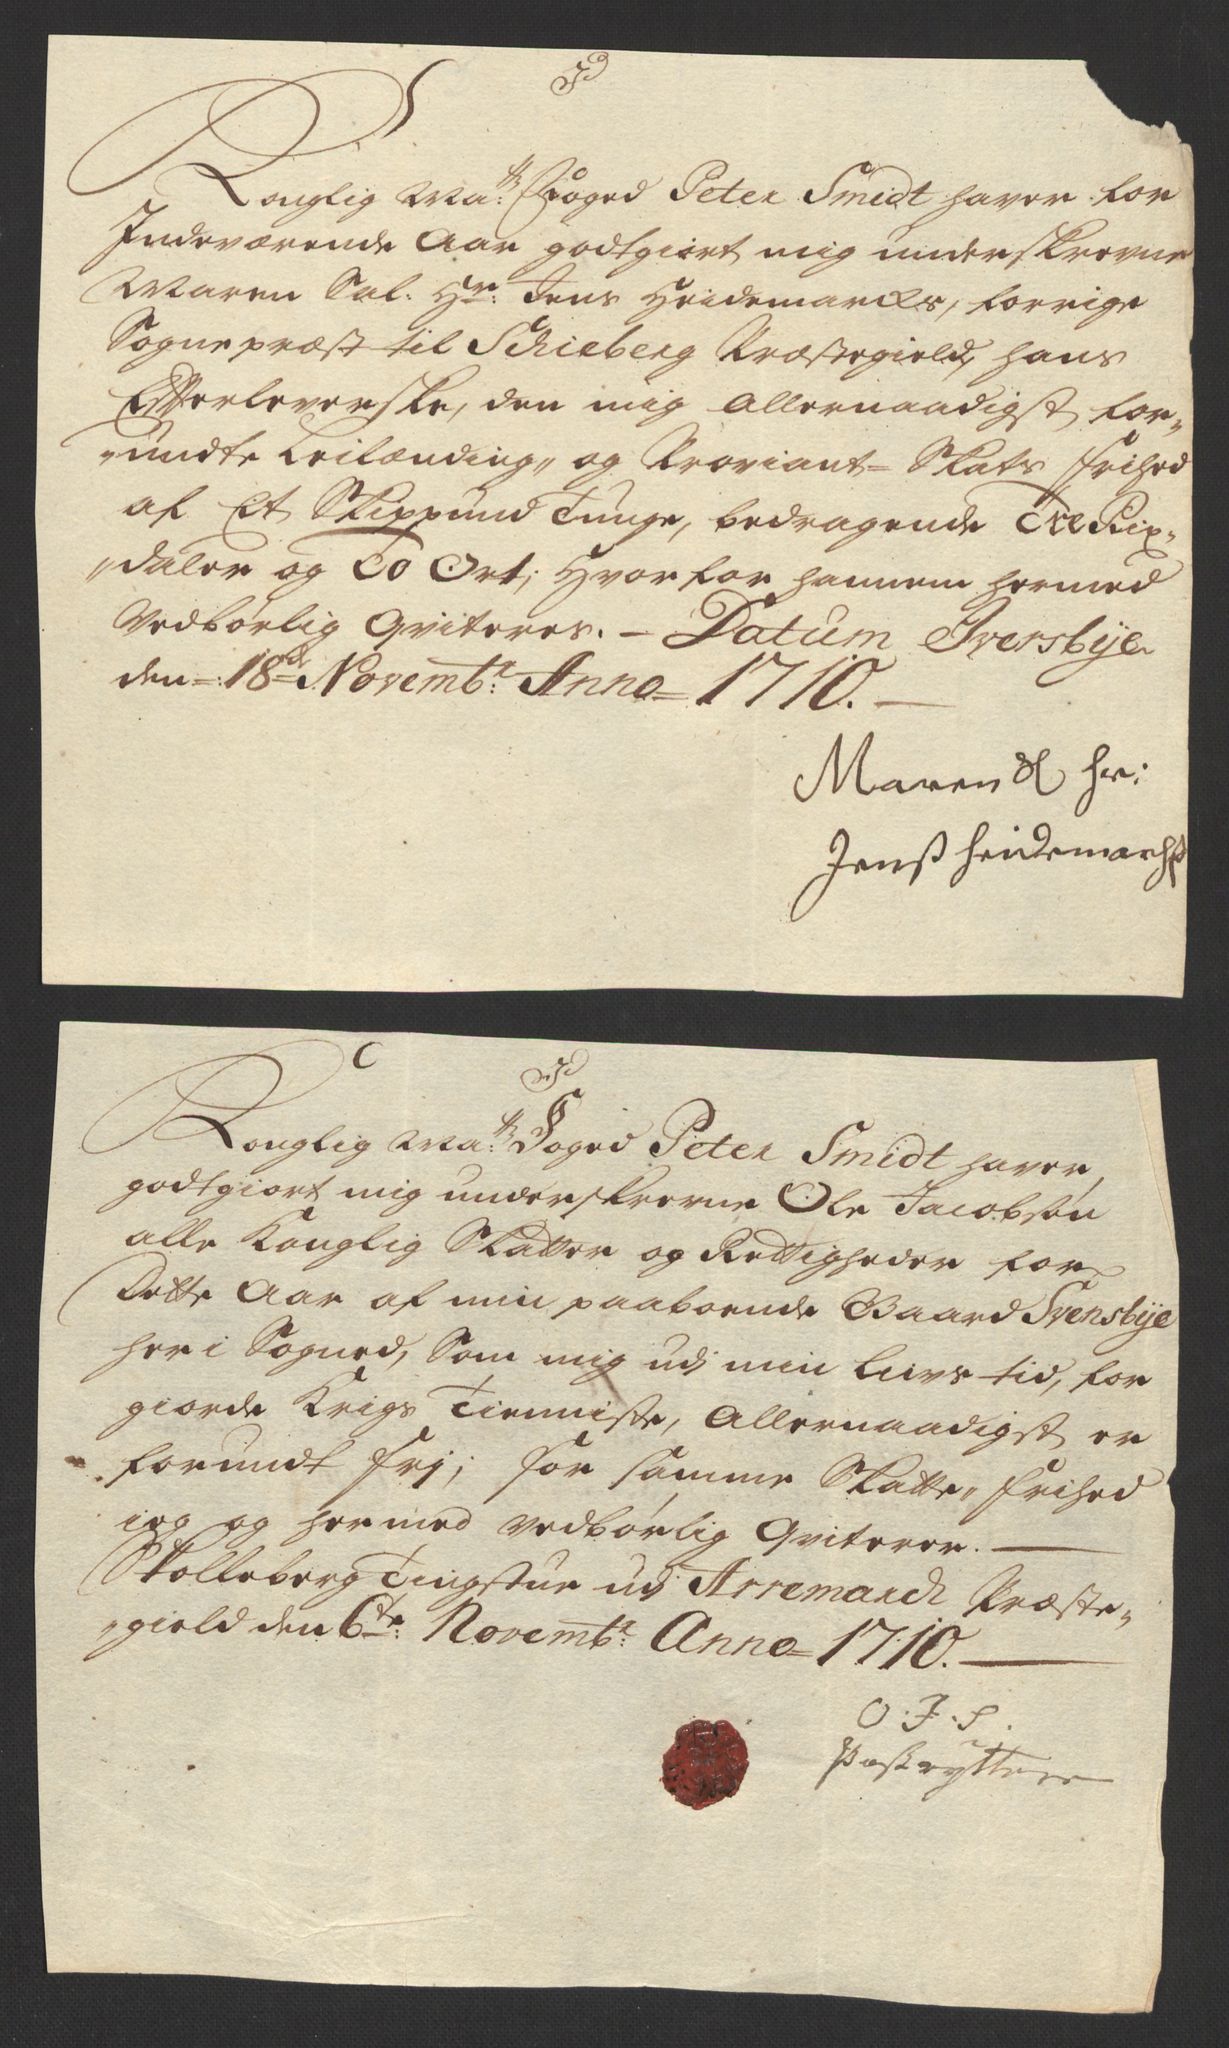 Konglig Maÿ: Foged Peter Smidt haver for
Indeværende Aar godtgiort mig underskrevne
Maren Sal. Hr: Jens Heidemarcks, forrige
Sognepræst til Schieberg Præstegield, hans
Efterleverske, den mig Allernaadigst for-
undte Leilænding- og Proviant- Skats Frihed
af Et Skippund Tunge, bedragende Tre Rix-
daler og To Ort; Hvorfor hannem hermed
vedbørlig Qviteres. - Datum Iversbye
den 18de Novembr: Anno 1710.
Maren Sl Hr:
Jenß Heidemarchß
Konglig Maÿ: Foged Peter Smidt haver,
godtgiort mig underskrevne Ole Jacobsøn
alle Konglig Skatter og Rettigheder for
Dette Aar af min paaboende Gaard Svensbye
her i Sogned, Som mig udj min Livs tid, for
giorde Krigs Tienniste, Allernaadigst er
forundt frj; for samme Skatte- Frihed
ieg og hermed vedbørlig Qviterer.
Skolleborg Tingstue udj Arremarch Præste-
gield den 6te: Novembr: Anno 1710.
O. J. S.
Postrytter